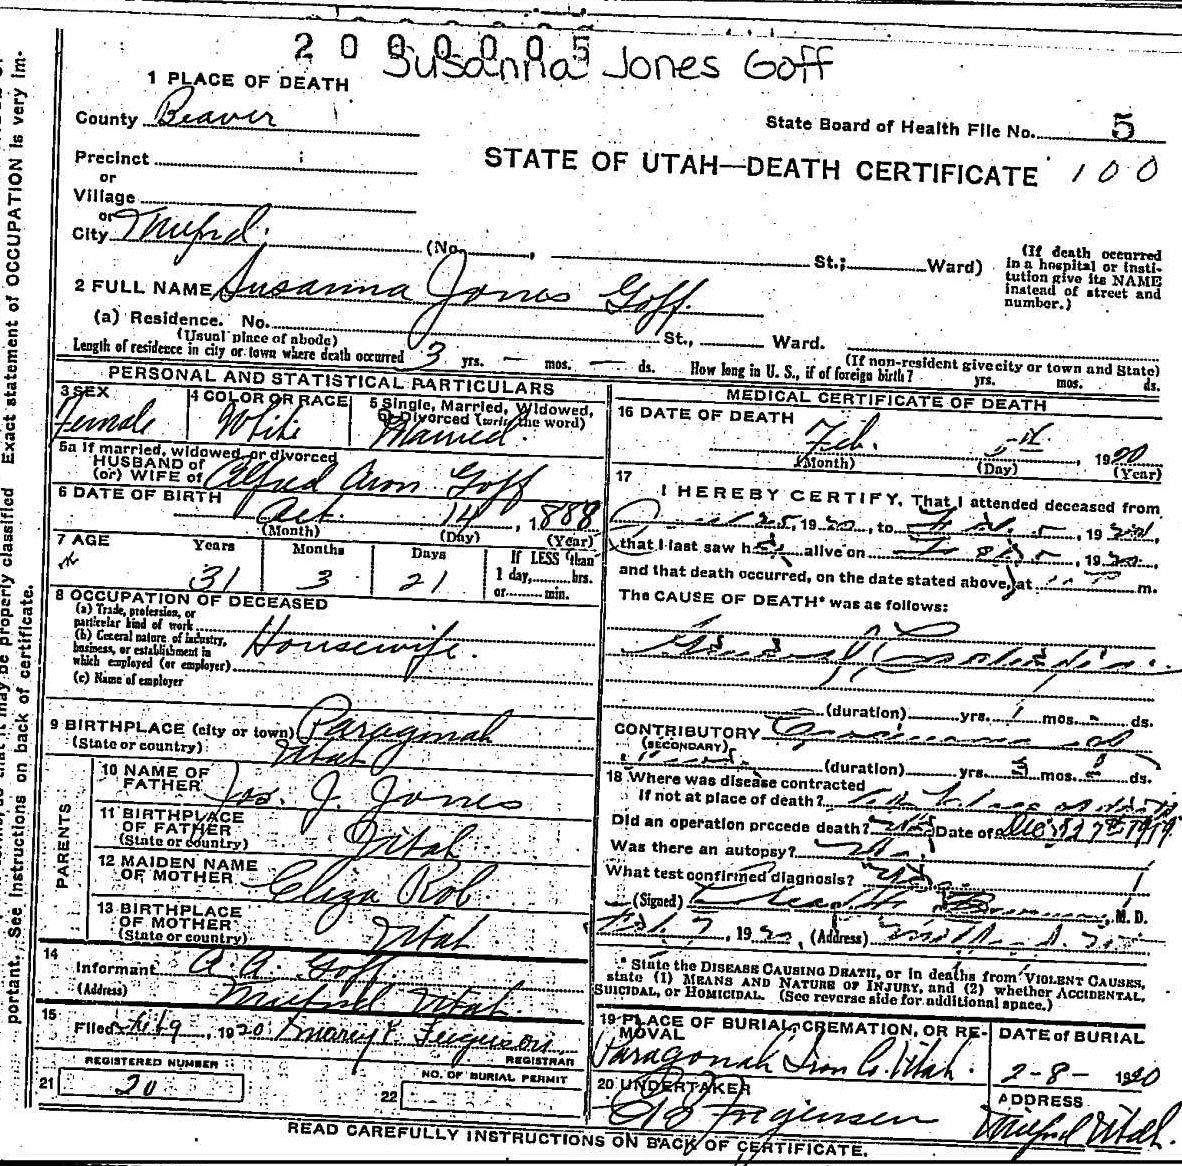 2000005
Susanna Jones Goff
1 PLACE OF DEATH
County Beaver
State Board of Health File No. 5
Precinct
STATE OF UTAH—DEATH CERTIFICATE 100
or
Village
or
City Milford.
(No. , St.; Ward)
(If death occurred
in a hospital or insti-
tution give its NAME
instead of street and
number.)
2 FULL NAME Susanna Jones Goff.
(a) Residence. No. St., Ward.
(Usual place of abode)
(If non-resident give city or town and State)
Length of residence in city or town where death occurred 3 yrs. — mos. — ds. How long in U. S., if of foreign birth? yrs. mos. ds.
PERSONAL AND STATISTICAL PARTICULARS
3 SEX
Female
4 COLOR OR RACE
White
5 Single, Married, Widowed,
or Divorced (write the word)
Married.
5a If married, widowed, or divorced
HUSBAND of
(or) WIFE of Alfred Aron Goff
6 DATE OF BIRTH
Oct. 14, 1888
(Month) (Day) (Year)
7 AGE
Years Months Days
31 3 21
If LESS than
1 day, hrs.
or min.
8 OCCUPATION OF DECEASED
(a) Trade, profession, or
particular kind of work
(b) General nature of industry,
business, or establishment in
which employed (or employer)
Housewife.
(c) Name of employer
9 BIRTHPLACE (city or town) Paragonah
(State or country) Utah
PARENTS
10 NAME OF
FATHER Jos. J. Jones
11 BIRTHPLACE
OF FATHER
(State or country) Utah
12 MAIDEN NAME
OF MOTHER Eliza Rob
13 BIRTHPLACE
OF MOTHER
(State or country) Utah
14
Informant A. A. Goff.
(Address) Milford Utah.
15
Filed Feb 9, 1920 Ferguson
REGISTRAR
REGISTERED NUMBER
21 20
NO. OF BURIAL PERMIT
22
MEDICAL CERTIFICATE OF DEATH
16 DATE OF DEATH
Feb. 5th, 1920
(Month) (Day) (Year)
17
I HEREBY CERTIFY, That I attended deceased from
25, 1920, to Feb 5, 1920,
that I last saw her alive on Feb 5, 1920.
and that death occurred, on the date stated above, at m.
The CAUSE OF DEATH* was as follows:
(duration) yrs. 1 mos. - ds.
CONTRIBUTORY
(SECONDARY)
(duration) yrs. mos. ds.
18 Where was disease contracted
if not at place of death?
Did an operation precede death? Yes Date of Dec. 27th 1919
Was there an autopsy? No.
What test confirmed diagnosis?
(Signed) M. D.
Feb. 7, 1920, (Address)
* State the DISEASE CAUSING DEATH, or in deaths from VIOLENT CAUSES,
state (1) MEANS AND NATURE OF INJURY, and (2) whether ACCIDENTAL,
SUICIDAL, or HOMICIDAL. (See reverse side for additional space.)
19 PLACE OF BURIAL, CREMATION, OR RE-
MOVAL
Paragonah Iron Co. Utah.
DATE OF BURIAL
2-8- 1920
20 UNDERTAKER
ADDRESS
Milford Utah.
READ CAREFULLY INSTRUCTIONS ON BACK OF CERTIFICATE.
Exact statement of OCCUPATION is very im-
portant. See instructions on back of certificate.
so that it may be properly classified